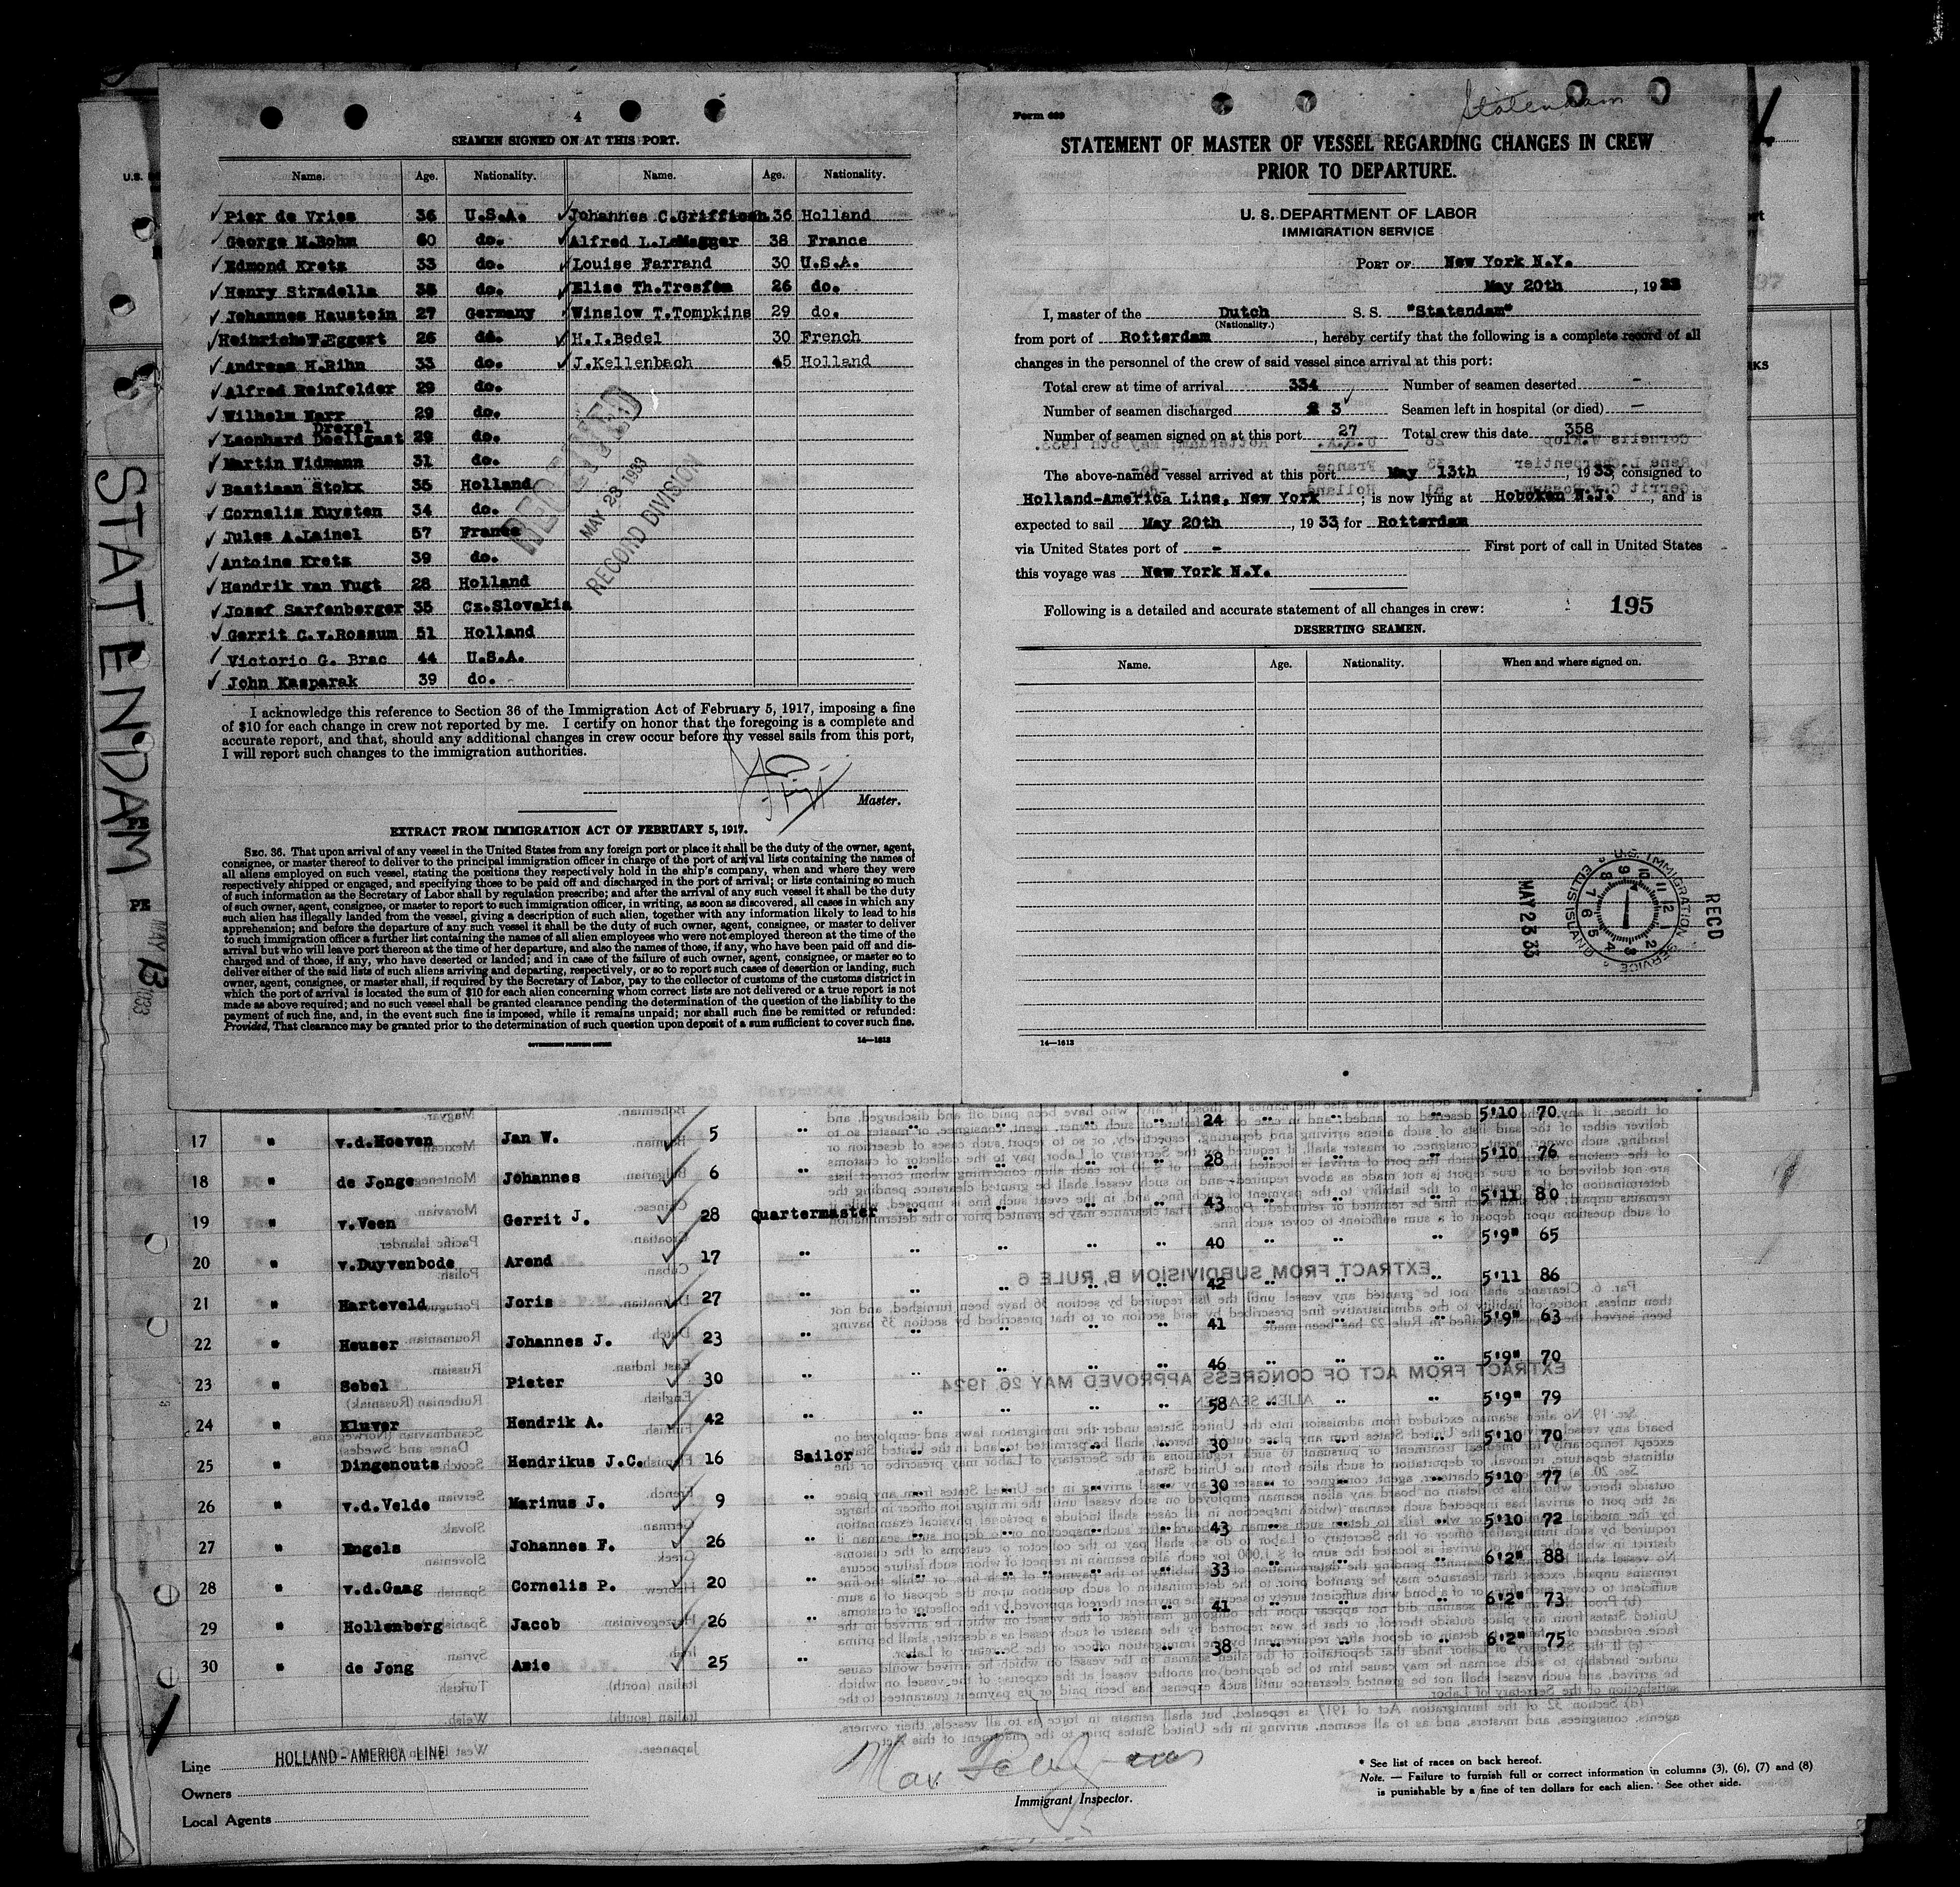 4
SEAMEN SIGNED ON AT THIS PORT.
Name. Age. Nationality. Name. Age. Nationality.
Pier de Vries 36 U.S.A. Johannes C.Griffioen 36 Holland
George M.Bohm 60 do. Alfred L.LeMagger 38 France
Edmond Kretz 33 do. Louise Farrand 30 U.S.A.
Henry Stradella do. Elise Th. 26 do.
Johannes Haustein 27 Germany Winslow T.Tompkins 29 do.
Heinrich W.Eggert 26 do. H.I.Bedel 30 French
Andreas H.Rihn 33 do. J.Kellenbach 45 Holland
Alfred Reinfelder 29 do.
Wilhelm Marr 29 do.
Drexel
Leonhard 29 do.
Martin Widmann 31 do.
Bastiaan Stokx 35 Holland
Cornelis Kuysten 34 do.
Jules A.Lainel 57 France
Antoine Kretz 39 do.
Hendrik van Vugt 28 Holland
Josef Sarfenberger 35 Cz.Slovakia
Gerrit C.v.Rossum 51 Holland
Victorio G. Brac 44 U.S.A.
John Kasparak 39 do.
RECEIVED
MAY 23 1933
RECORD DIVISION
I acknowledge this reference to Section 36 of the Immigration Act of February 5, 1917, imposing a fine
of $10 for each change in crew not reported by me. I certify on honor that the foregoing is a complete and
accurate report, and that, should any additional changes in crew occur before my vessel sails from this port,
I will report such changes to the immigration authorities.
Master.
EXTRACT FROM IMMIGRATION ACT OF FEBRUARY 5, 1917.
SEC. 36. That upon arrival of any vessel in the United States from any foreign port or place it shall be the duty of the owner, agent,
consignee, or master thereof to deliver to the principal immigration officer in charge of the port of arrival lists containing the names of
all aliens employed on such vessel, stating the positions they respectively hold in the ship's company, when and where they were
respectively shipped or engaged, and specifying those to be paid off and discharged in the port of arrival; or lists containing so much
of such information as the Secretary of Labor shall by regulation prescribe; and after the arrival of any such vessel it shall be the duty
of such owner, agent, consignee, or master to report to such immigration officer, in writing, as soon as discovered, all cases in which any
such alien has illegally landed from the vessel, giving a description of such alien, together with any information likely to lead to his
apprehension; and before the departure of any such vessel it shall be the duty of such owner, agent, consignee, or master to deliver
to such immigration officer a further list containing the names of all alien employees who were not employed thereon at the time of the
arrival but who will leave port thereon at the time of her departure, and also the names of those, if any, who have been paid off and dis-
charged and of those, if any, who have deserted or landed; and in case of the failure of such owner, agent, consignee, or master so to
deliver either of the said lists of such aliens arriving and departing, respectively, or so to report such cases of desertion or landing, such
owner, agent, consignee, or master shall, if required by the Secretary of Labor, pay to the collector of customs of the customs district in
which the port of arrival is located the sum of $10 for each alien concerning whom correct lists are not delivered or a true report is not
made as above required; and no such vessel shall be granted clearance pending the determination of the question of the liability to the
payment of such fine, and, in the event such fine is imposed, while it remains unpaid; nor shall such fine be remitted or refunded:
Provided, That clearance may be granted prior to the determination of such question upon deposit of a sum sufficient to cover such fine.
GOVERNMENT PRINTING OFFICE 14—1613
Statendam
Form 689
STATEMENT OF MASTER OF VESSEL REGARDING CHANGES IN CREW
PRIOR TO DEPARTURE.
U. S. DEPARTMENT OF LABOR
IMMIGRATION SERVICE
PORT OF New York N.Y.
May 20th, 1933
I, master of the Dutch S. S. "Statendam"
(Nationality.)
from port of Rotterdam, hereby certify that the following is a complete record of all
changes in the personnel of the crew of said vessel since arrival at this port:
Total crew at time of arrival 334 Number of seamen deserted -
Number of seamen discharged 3 Seamen left in hospital (or died) -
Number of seamen signed on at this port 27 Total crew this date 358
The above-named vessel arrived at this port May 13th, 1933, consigned to
Holland-America Line, New York; is now lying at Hoboken N.J., and is
expected to sail May 20th, 1933, for Rotterdam
via United States port of - First port of call in United States
this voyage was New York N.Y.
Following is a detailed and accurate statement of all changes in crew: 195
DESERTING SEAMEN.
Name. Age. Nationality. When and where signed on.
U.S. IMMIGRATION SERVICE ELLIS ISLAND
RECD
MAY 23 33
14—1613
STATENDAM
MAY 13 1933
24 5'10 70
17 " v.d.Hoeven Jan W. 5 " 28 5'10 76
18 " de Jonge Johannes 6 " 43 5'11 80
19 " v.Veen Gerrit J. 28 Quartermaster 40 5'9" 65
20 " v.Duyvenbode Arend 17 " 42 5'11 86
21 " Harteveld Joris 27 " 41 5'9" 63
22 " Heuser Johannes J. 23 " 46 5'9" 70
23 " Sebel Pieter 30 " 58 5'9" 79
24 " Kluver Hendrik A. 42 " 30 5'10 70
25 " Dingenouts Hendrikus J.C. 16 Sailor 30 5'10 77
26 " v.d.Velde Marinus J. 9 " 43 5'10 72
27 " Engels Johannes F. 26 " 33 6'2" 88
28 " v.d.Gaag Cornelis P. 20 " 41 6'2" 73
29 " Hollenberg Jacob 26 " 38 6'2" 75
30 " de Jong Azie 25 "
Line HOLLAND-AMERICA LINE
Owners
Local Agents
Immigrant Inspector.
* See list of races on back hereof.
Note. — Failure to furnish full or correct information in columns (3), (6), (7) and (8)
is punishable by a fine of ten dollars for each alien. See other side.